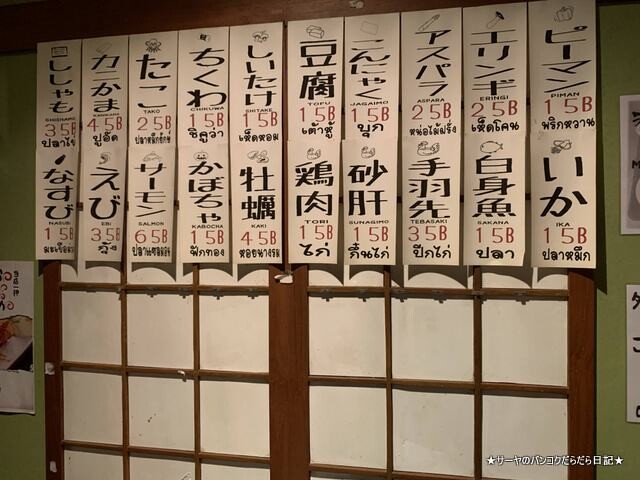 ピーマン
PIMAN
15B
พริกหวาน
エリンギ
ERINGI
25B
เห็ดโคน
アスパラ
ASPARA
25B
หน่อไม้ฝรั่ง
こんにゃく
JAGAIMO
15B
บุก
豆腐
TOFU
15B
เต้าหู้
しいたけ
SHITAKE
15B
เห็ดหอม
ちくわ
CHIKUWA
15B
ชิคูว่า
たこ
TAKO
25B
ปลาหมึกยักษ์
カニかま
KANIKAMA
45B
ปูอัด
ししゃも
SHISHAMO
35B
ปลาไข่
いか
IKA
15B
ปลาหมึก
白身魚
SAKANA
15B
ปลา
手羽先
TEBASAKI
35B
ปีกไก่
砂肝
SUNAGIMO
15B
กึ๋นไก่
鶏肉
TORI
15B
ไก่
牡蠣
KAKI
45B
หอยนางรม
かぼちゃ
KABOCHA
15B
ฟักทอง
サーモン
SALMON
65B
ปลาแซลมอน
えび
EBI
35B
กุ้ง
なすび
NASUBI
15B
มะเขือม่วง
★サーヤのバンコクだらだら日記★